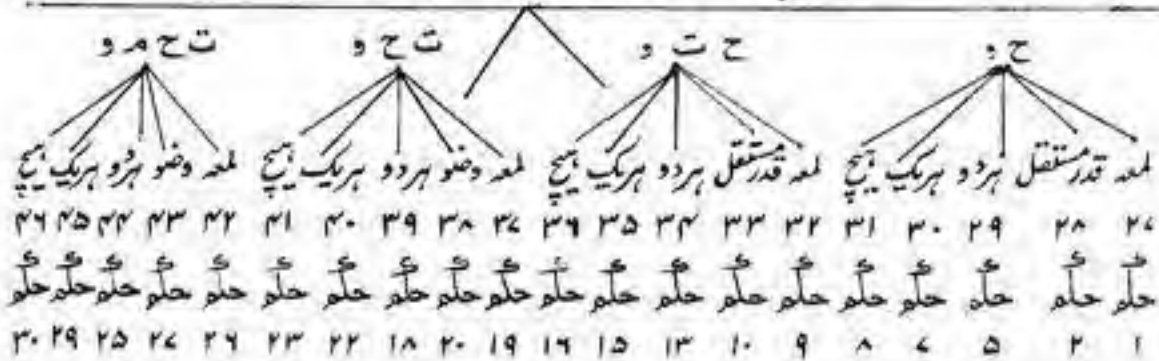 ح و ح ت و ت ح و ت ح م و
لمعہ قدر مستقل ہر دو ہر یک ہیچ لمعہ قدر مستقل ہر دو ہر یک ہیچ لمعہ وضو ہر دو ہر یک ہیچ لمعہ وضو ہر دو ہر یک ہیچ
۲۷ ۲۸ ۲۹ ۳۰ ۳۱ ۳۲ ۳۳ ۳۴ ۳۵ ۳۶ ۳۷ ۳۸ ۳۹ ۴۰ ۴۱ ۴۲ ۴۳ ۴۴ ۴۵ ۴۶
حکم حکم حکم حکم حکم حکم حکم حکم حکم حکم حکم حکم حکم حکم حکم حکم حکم حکم حکم حکم
۱ ۲ ۵ ۷ ۸ ۹ ۱۰ ۱۳ ۱۵ ۱۶ ۱۹ ۲۰ ۱۸ ۲۲ ۲۳ ۲۶ ۲۷ ۲۵ ۲۹ ۳۰